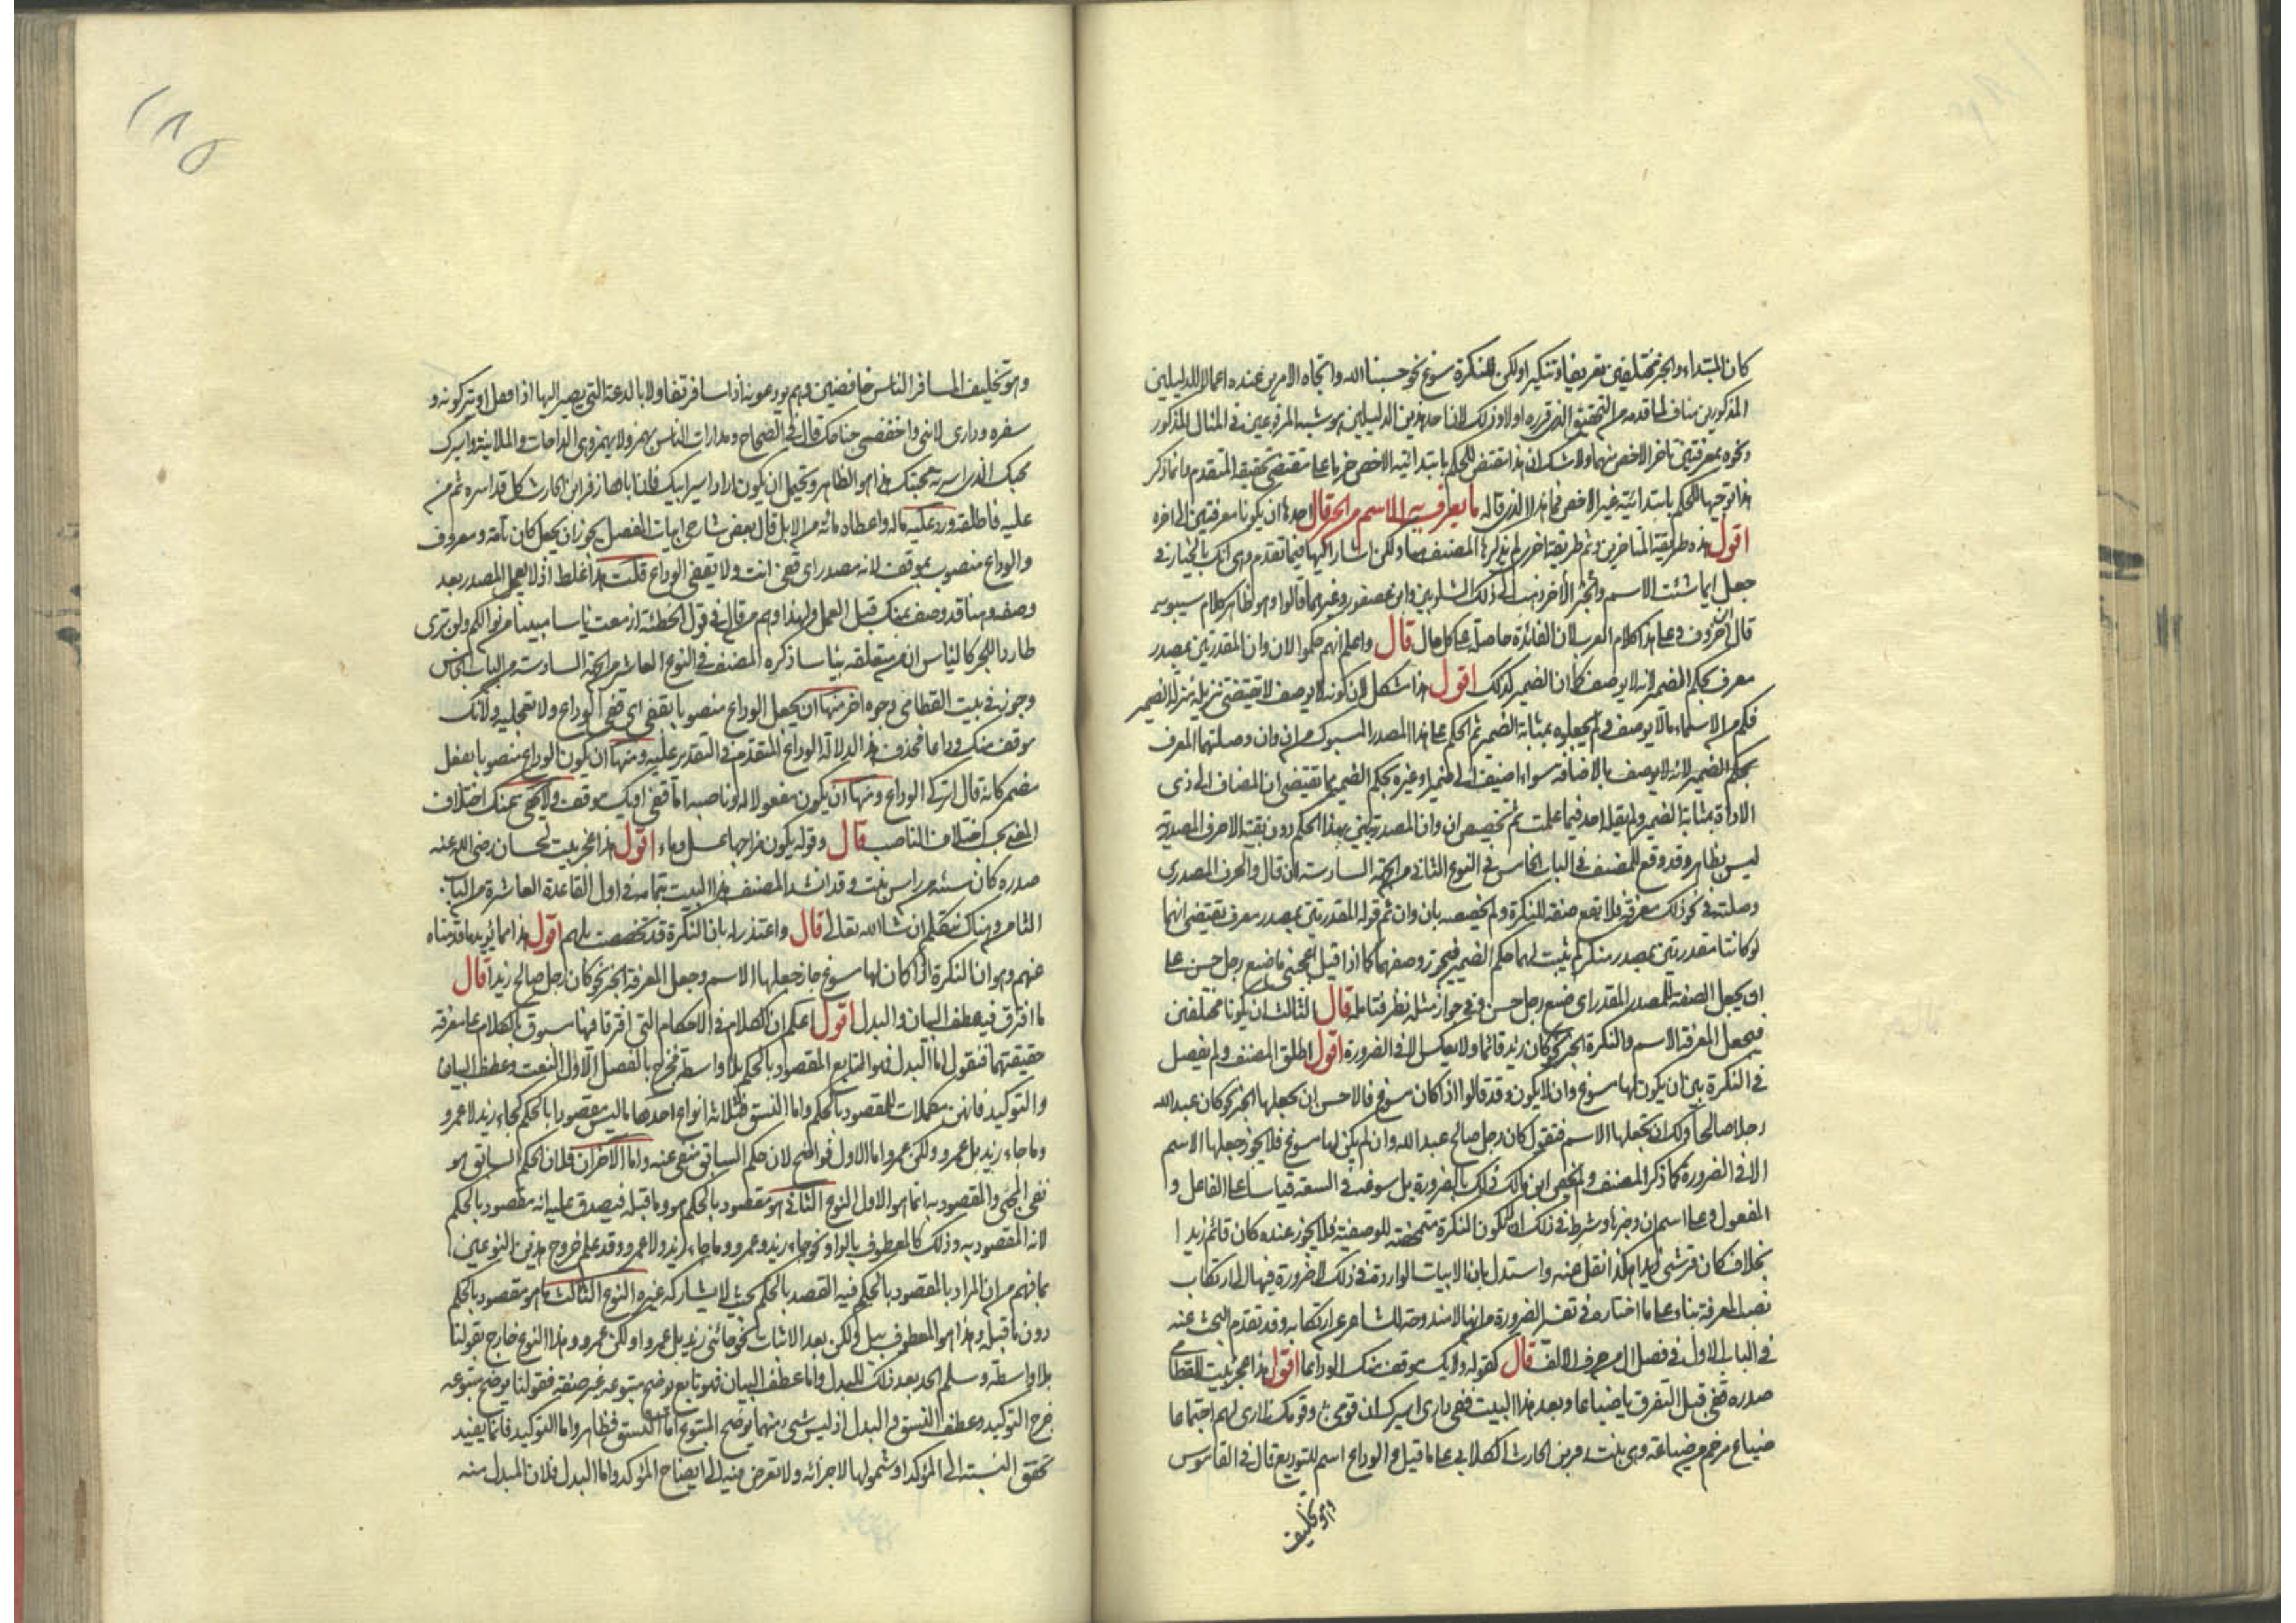 كان المبتداء والخبر مختلفين تعريفا وتنكيرا ولكن للنكرة مسوغ نحو حسبنا الله واتجاه الامرين عنده اعمالا للدليلين
المذكورين مناف لما قدمه من التحقيق الذي قرره اولا وذلك لان احد هذين الدليلين هو شبه المرفوعين في المثال المذكور
ونحوه بمعرفتين تاخر الاخص منهما ولا شك ان هذا مقتض للحكم بابتدائية الاخص خريا على مقتضى تحقيقه المتقدم وانما ذكر
هذا توجيها للحكم بابتدائية غير الاخص فما هذا الذي قاله ما يعرف به الاسم من الخبر قال احدها ان يكونا معرفتين الى اخره
اقول هذه طريقة المتاخرين وثم طريقة اخرى لم يذكرها المصنف هنا ولكن اشار اليها فيما تقدم وهي انك بالخيار في
جعل ايما شئت الاسم والخبر الآخر ذهب الى ذلك الشلوبين وابن عصفور وغيرهما قالوا وهو ظاهر كلام سيبويه
قال ابن خروف وعلى هذا كلام العرب لان الفائدة حاصلة على كل حال قال واعلم انهم حكموا لان وان المقدرتين بمصدر
معرف بحكم الضمير لانه لا يوصف كما ان الضمير كذلك اقول هذا مشكل لان كونه لا يوصف لا يقتضي تنزيله منزلة الضمير
فكم من الاسماء ما لا يوصف ولم يجعلوه بمثابة الضمير ثم الحكم على هذا المصدر المسبوك من ان وان وصلتهما المعرف
بحكم الضمير لانه لا يوصف بالاضافة سواء اضيف الى ضمير او غيره بحكم الضمير مما يقتضي ان المضاف الى ذي
الاداة بمثابة الضمير ولم يقله احد فيما علمت ثم تخصيص ان وان المصدريتين بهذا الحكم دون بقية الاحرف المصدرية
ليس بظاهر وقد وقع للمصنف في الباب الخامس في النوع الثاني من الجهة السادسة ان قال والحرف المصدري
وصلته في نحو ذلك معرفة فلا يقع صفة للنكرة ولم يخصصه بان وان ثم قوله المقدرتين بمصدر معرف يقتضي انهما
لو كانتا مقدرتين بمصدر منكر لم يثبت لهما حكم الضمير فيجوز وصفهما كما اذا قيل يعجبني ما صنع رجل حسن على
ان يجعل الصفة للمصدر المقدر اي صنع رجل حسن وفي جواز مثله نظر فتامله قال الثالث ان يكونا مختلفين
فيجعل المعرفة الاسم والنكرة الخبر نحو كان زيد قائما ولا يعكس الا في الضرورة اقول اطلق المصنف ولم يفصل
في النكرة بين ان يكون لها مسوغ وان لا يكون وقد قالوا اذا كان مسوغ فالاحسن ان يجعلها الخبر نحو كان عبد الله
رجلا صالحا ولك ان تجعلها الاسم فتقول كان رجل صالح عبد الله وان لم يكن لها مسوغ فلا يجوز جعلها الاسم
الا في الضرورة كما ذكر المصنف ولم يخص ابن مالك ذلك بالضرورة بل سوغه في السعة قياسا على الفاعل و
المفعول وعلى اسم ان وخبرها وشرط في ذلك ان لا تكون النكرة متمحضة للوصفية فلا يجوز عنده كان قائم زيدا
بخلاف كان قرشي زيدا هكذا نقل عنه واستدل بان الابيات الواردة في ذلك لا ضرورة فيها الى ارتكاب
نصب المعرفة بناء على ما اختاره في تفسير الضرورة من انها لا مندوحة للشاعر عن ارتكابه وقد تقدم البحث عنه
في الباب الاول في فصل ال من حرف الالف قال كقوله ولا يك موقف منك الوداعا اقول هذا عجز بيت للقطامي
صدره قفي قبل التفرق يا ضباعا وبعد هذا البيت قفي فادي اسيرك ان قومي وقومك لا ارى لهم اجتماعا
ضباع مرخم من ضباعة وهي بنت زفر بن الحارث الكلابي على ما قيل والوداع اسم للتوديع قال في القاموس
وهو تخليف
وهو تخليف المسافر الناس خافضين وهم يودعونه اذا سافر تفاولا بالدعة التي يصير اليها اذا قفل او يتركونه و
سفره وداري لانني واخفضي جناحك قال في الصحاح ومدارات الناس يهمز ولا يهمز وهي المداجات والملاينة واسيرك
محبك الذي اسرته محبتك هذا هو الظاهر ويحتمل ان يكون اراد اسير ابيك فان اباها زفر ابن الحارث كان قد اسره ثم من
عليه فاطلقه ورد عليه ماله واعطاه مائة من الابل قال بعض شارحي ابيات المفصل يجوز ان يجعل كان تامة ومعروف
والوداع منصوب بموقف لانه مصدر اي قفي انت ولا يقفي الوداع قلت هذا غلط اذ لا يعمل المصدر بعد
وصفه وهنا قد وصف بمنك قبل العمل ولهذا وهم من قال في قول الحطيئة ازمعت ياسا مبينا من نوالكم ولن ترى
طاردا للحر كالياس ان من متعلقة بياسا ذكره المصنف في النوع العاشر من الجهة السادسة من الباب الخامس
وجوز في بيت القطامي وجوه اخر منها ان يجعل الوداع منصوبا بقفي اي قفي الوداع ولا تعجليه ولا يك
موقف منك وداعا فحذف هذا لدلالة الوداع المتقدم في التقدير عليه ومنها ان يكون الوداع منصوبا بفعل
مضمر كانه قال اتركي الوداع ومنها ان يكون مفعولا له وناصبه اما قفي او يك موقف ولا يخفى عنك اختلاف
المعنى بحسب اختلاف الناصب قال وقوله يكون مزاجها عسل وماء اقول هذا عجز بيت لحسان رضي الله عنه
صدره كان سبيئة من راس بنت وقد انشد المصنف هذا البيت بتمامه في اول القاعدة العاشرة من الباب
الثامن وهناك نتكلم ان شا الله تعالى قال واعتذر له بان النكرة قد تخصصت بلهم اقول هذا مما يؤيد ما قدمناه
عنهم وهو ان النكرة اذا كان لها مسوغ جاز جعلها الاسم وجعل المعرفة الخبر نحو كان رجل صالح زيدا قال
ما افترق فيه عطف البيان والبدل اقول اعلم ان الكلام في الاحكام التي افترقا فيها مسوق بالكلام على معرفة
حقيقتهما فنقول اما البدل فهو التابع المقصود بالحكم بلا واسطة فخرج بالفصل الاول النعت وعطف البيان
والتوكيد فانهن مكملات للمقصود بالحكم واما النسق فثلاثة انواع احدها ما ليس مقصودا بالحكم كجاء زيد لا عمرو
وما جاء زيد بل عمرو ولكن عمرو اما الاول فواضح لان حكم السابق منفي عنه واما الآخران فلان الحكم السابق هو
نفي المجي والمقصود به انما هو الاول النوع الثاني هو مقصود بالحكم هو وما قبله فيصدق عليه انه مقصود بالحكم
لانه المقصود به وذلك كالمعطوف بالواو نحو جاء زيد وعمرو وما جاء زيد ولا عمرو وقد علم خروج هذين النوعين
بما فهم من ان المراد بالمقصود بالحكم فيه القصد بالحكم بحيث لا يشاركه غيره النوع الثالث ما هو مقصود بالحكم
دون ما قبله وهذا هو المعطوف ببل ولكن بعد الاثبات نحو جائني زيد بل عمرو او لكن عمرو وهذا النوع خارج بقولنا
بلا واسطة وسلم الحد بعد ذلك للبدل واما عطف البيان فهو تابع يوضح متبوعه غير صفة فقولنا يوضح متبوعه
خرج التوكيد وعطف النسق والبدل اذ ليس شي منهما يوضح المتبوع اما النسق فظاهر واما التوكيد فانما يفيد
تحقق النسبة الى المؤكد او شمولها لاجزائه ولا تعرض فيه الى ايضاح المؤكد واما البدل فلان المبدل منه